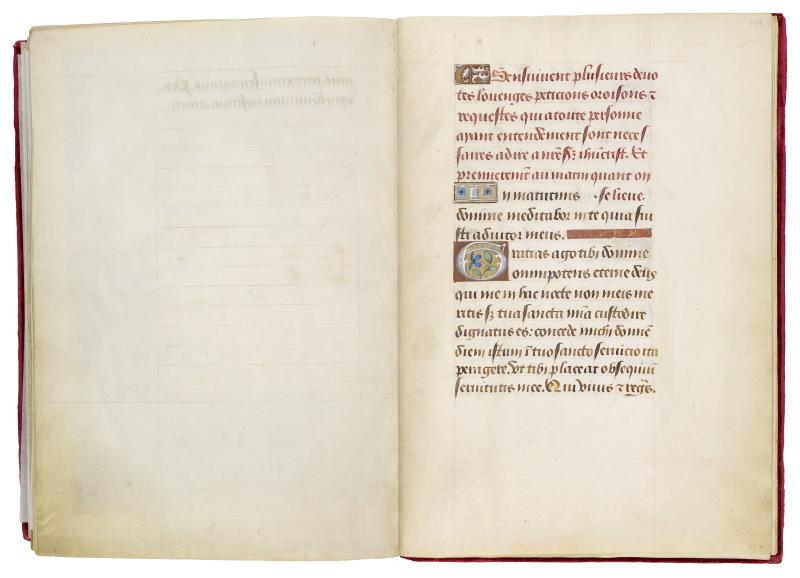 Sensuivent plusieurs devo
tes louenges peticions oroisons ⁊
requestes qui a toute personne
ayant entendement sont neces
saires a dire a nrē sr̄ ihūcrist. Et
premieremēt au matin quant on
In matutinis se lieve.
domine meditabor in te quia fui
sti adiutor meus.
Gratias ago tibi domine
omnipotens eterne deus
qui me in hac nocte non meis me
ritis sȝ tua sancta mīa custodire
dignatus es: concede michi domīe
diem istum ī tuo sancto servicio ita
peragere. Vt tibi placeat obsequiū
servitutis mee. Qui vivis ⁊ regn̄s.